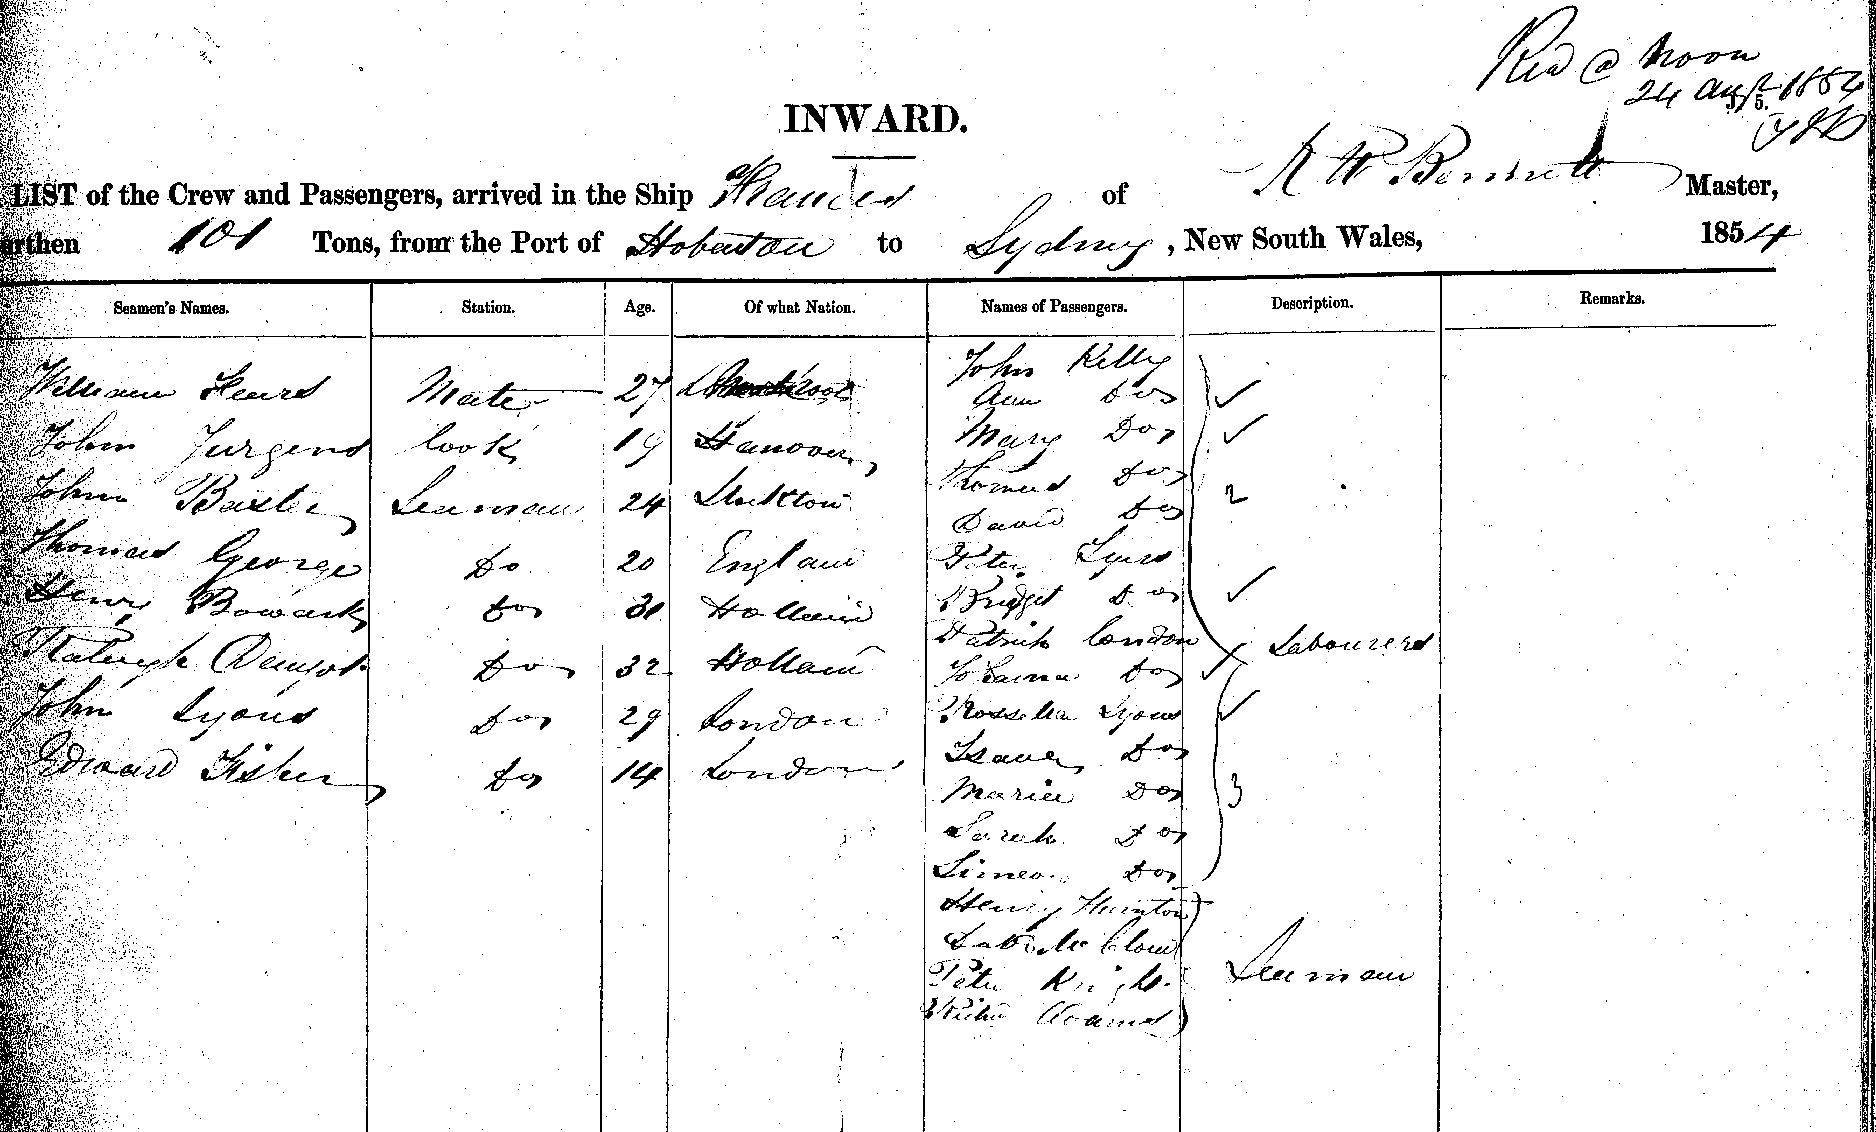 Recd @ Noon
24 Augst 1854
INWARD.
LIST of the Crew and Passengers, arrived in the Ship Frances of R W Bennett Master,
urthen 101 Tons, from the Port of Hobarton to Sydney, New South Wales, 1854
Seamen's Names. Station. Age. Of what Nation. Names of Passengers. Description. Remarks.
John Kelly
William Mate 27
Ann Do
John Jurgens Cook 19 Hanover
Mary Do
Thomas Do
John Baxter Seaman 24 Stockton 2
David Do
Thomas George Do 20 England
Peter
Henry Do 31 Holland
Bridget Do
Patrick Condon Labourers
Do 32 Holland
Johanna Do
John Lyons Do 29 London
Rosetta Lyons
Isaac Do
Edward Fisher Do 14 London
Maria Do 3
Sarah Do
Simeon Do
Henry Thornton
Peter Knight Seaman
Adams